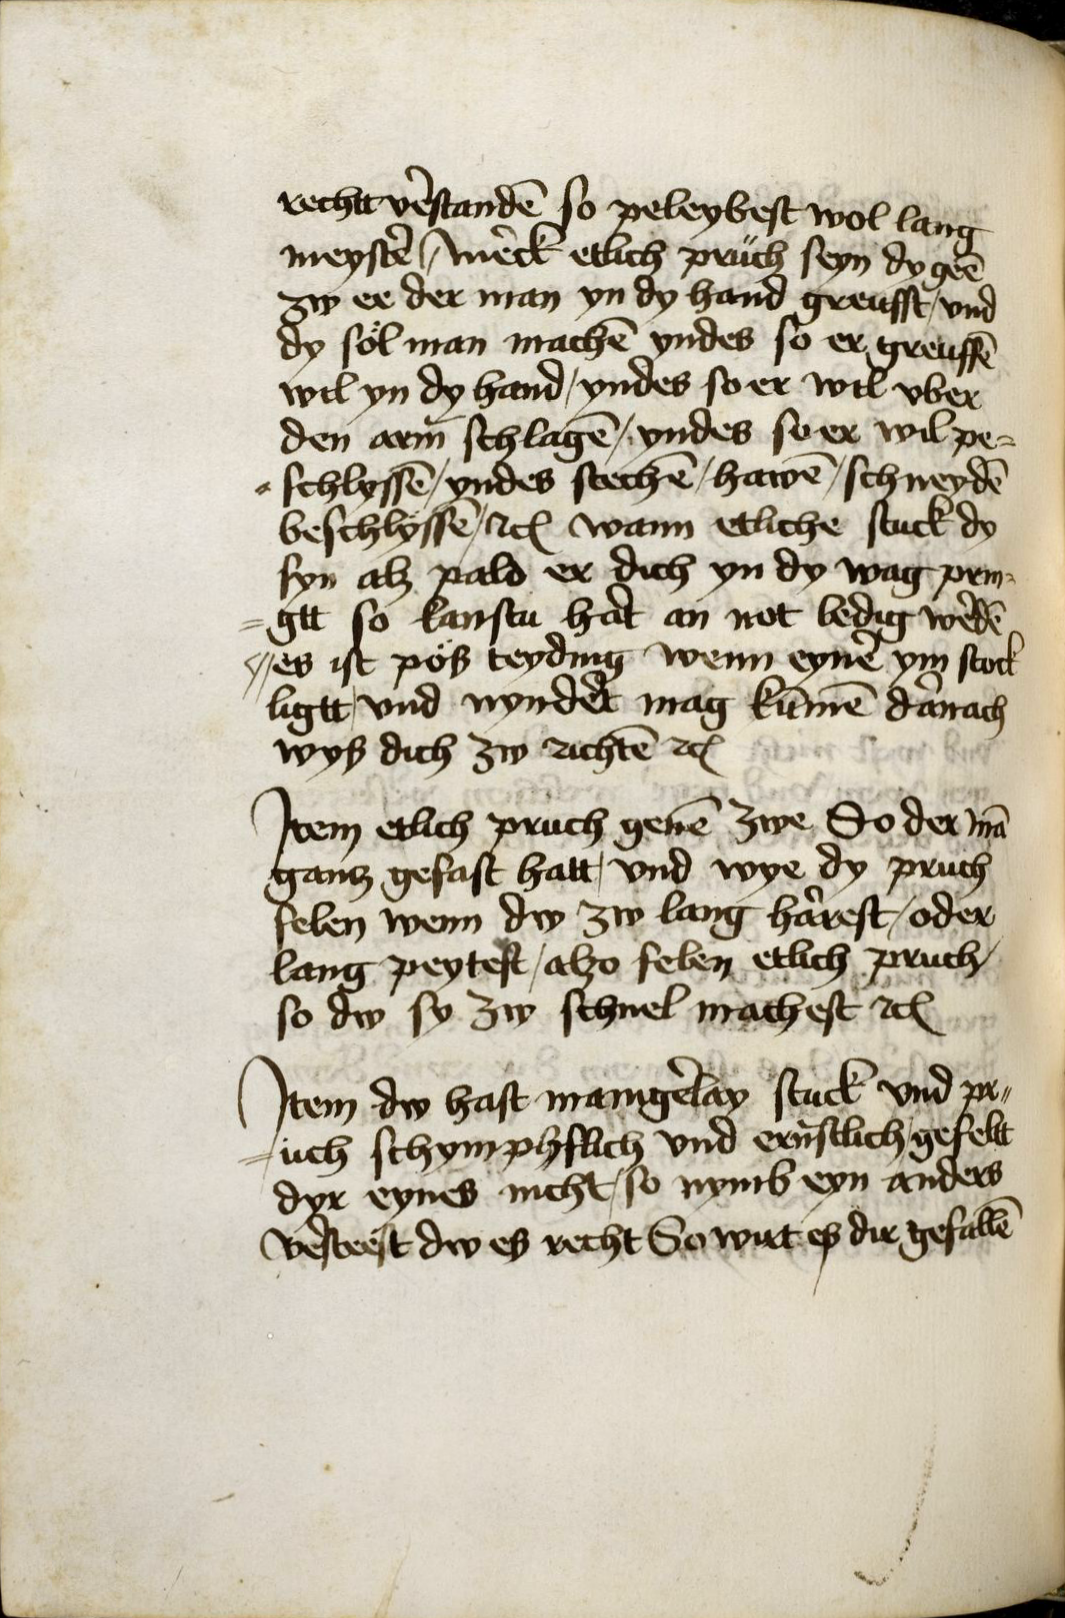 rechtt v̾standē so peleybest wol lang
meyst̾ / m̾ck etlich prüch seyn dy geē
zw ee der man yn dy hand greufft / vnd
dy söl man machē yndes so er greuffē
wil yn dy hand / yndes so er wil vber
den arm̄ schlagē / yndes so er wil pe=
schlyssē / yndes stechē / hawē / schneydē
beschlyssē / rc̄ wann etliche stuck dy
syn alz pald er dich yn dy wag prin=
=gtt so kanstu hart an not ledig w̾dē
// es ist pöß teyding wenn eyn̾ ym stock
ligtt / vnd nyndert mag kūmē darnach
wyß dich zw richtē rc̄
Item etlich pruch genē zwe So der mā
gantz gefast hatt / vnd wye dy pruch
felen wenn dw zw lang harrest / oder
lang peytest / alzo felen etlich pruch /
so dw sy zw schnel machest rc̄
Item dw hast manig̾lay stuck vnd pr=
=uch schymphflich vnd ernstlich / gefelt
dyr eynes nicht / so nymb eyn anders
v̾steest dw es recht So wirt eß dir gefallē